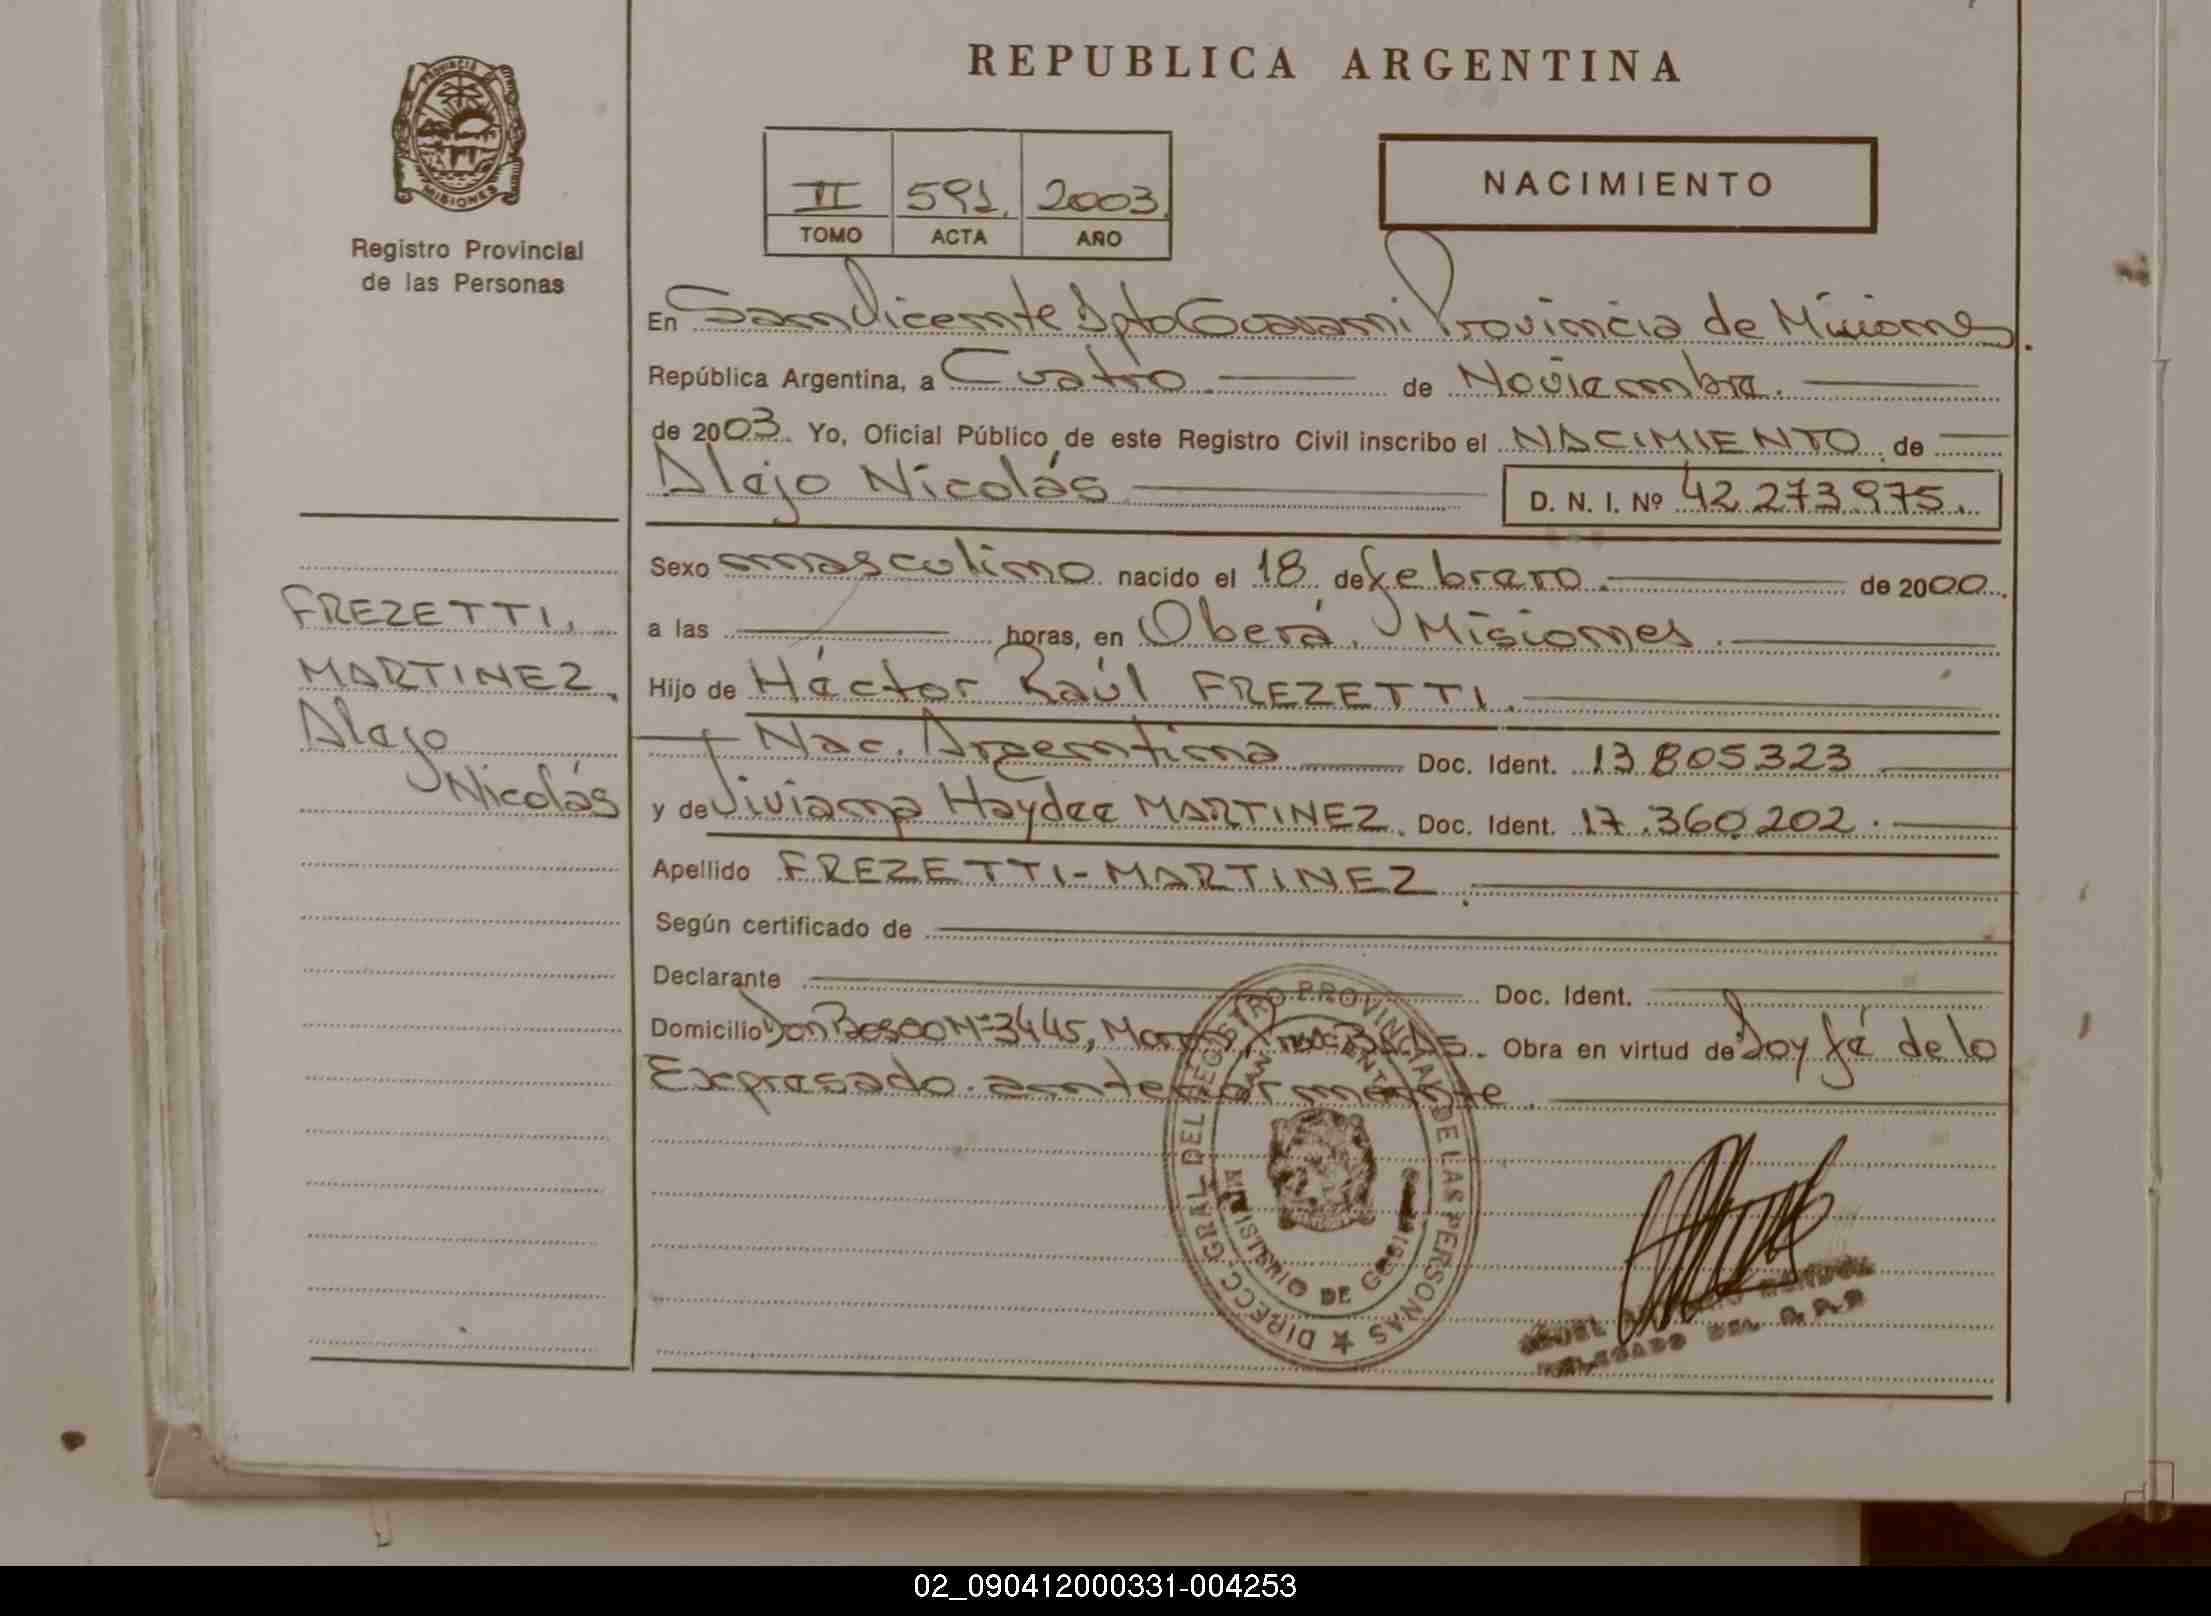 REPUBLICA ARGENTINA
PROVINCIA DE
MISIONES
Registro Provincial
de las Personas
II 591. 2003.
TOMO ACTA AÑO
NACIMIENTO
En San Vicente Dpto Guaraní Provincia de Misiones.
República Argentina, a Cuatro de Noviembre.
de 2003. Yo, Oficial Público de este Registro Civil inscribo el NACIMIENTO de
Alejo Nicolás
D. N. I. Nº 42.273.975.
Sexo masculino nacido el 18 de febrero. de 2000.
a las horas, en Oberá. Misiones.
Hijo de Héctor Raúl FREZETTI.
Nac. Argentina Doc. Ident. 13.805.323
y de Viviana Haydee MARTINEZ. Doc. Ident. 17.360.202.
Apellido FREZETTI-MARTINEZ.
Según certificado de
Declarante Doc. Ident.
Domicilio Don Bosco Nº 3445, Bs.As. Obra en virtud de Doy fé de lo
Expresado anteriormente.
FREZETTI,
MARTINEZ.
Alejo
Nicolás
DIRECC. GRAL. DEL REGISTRO PROVINCIAL DE LAS PERSONAS
MINISTERIO DE GOBIERNO
DELEGADO DEL R.P.P
02_090412000331-004253